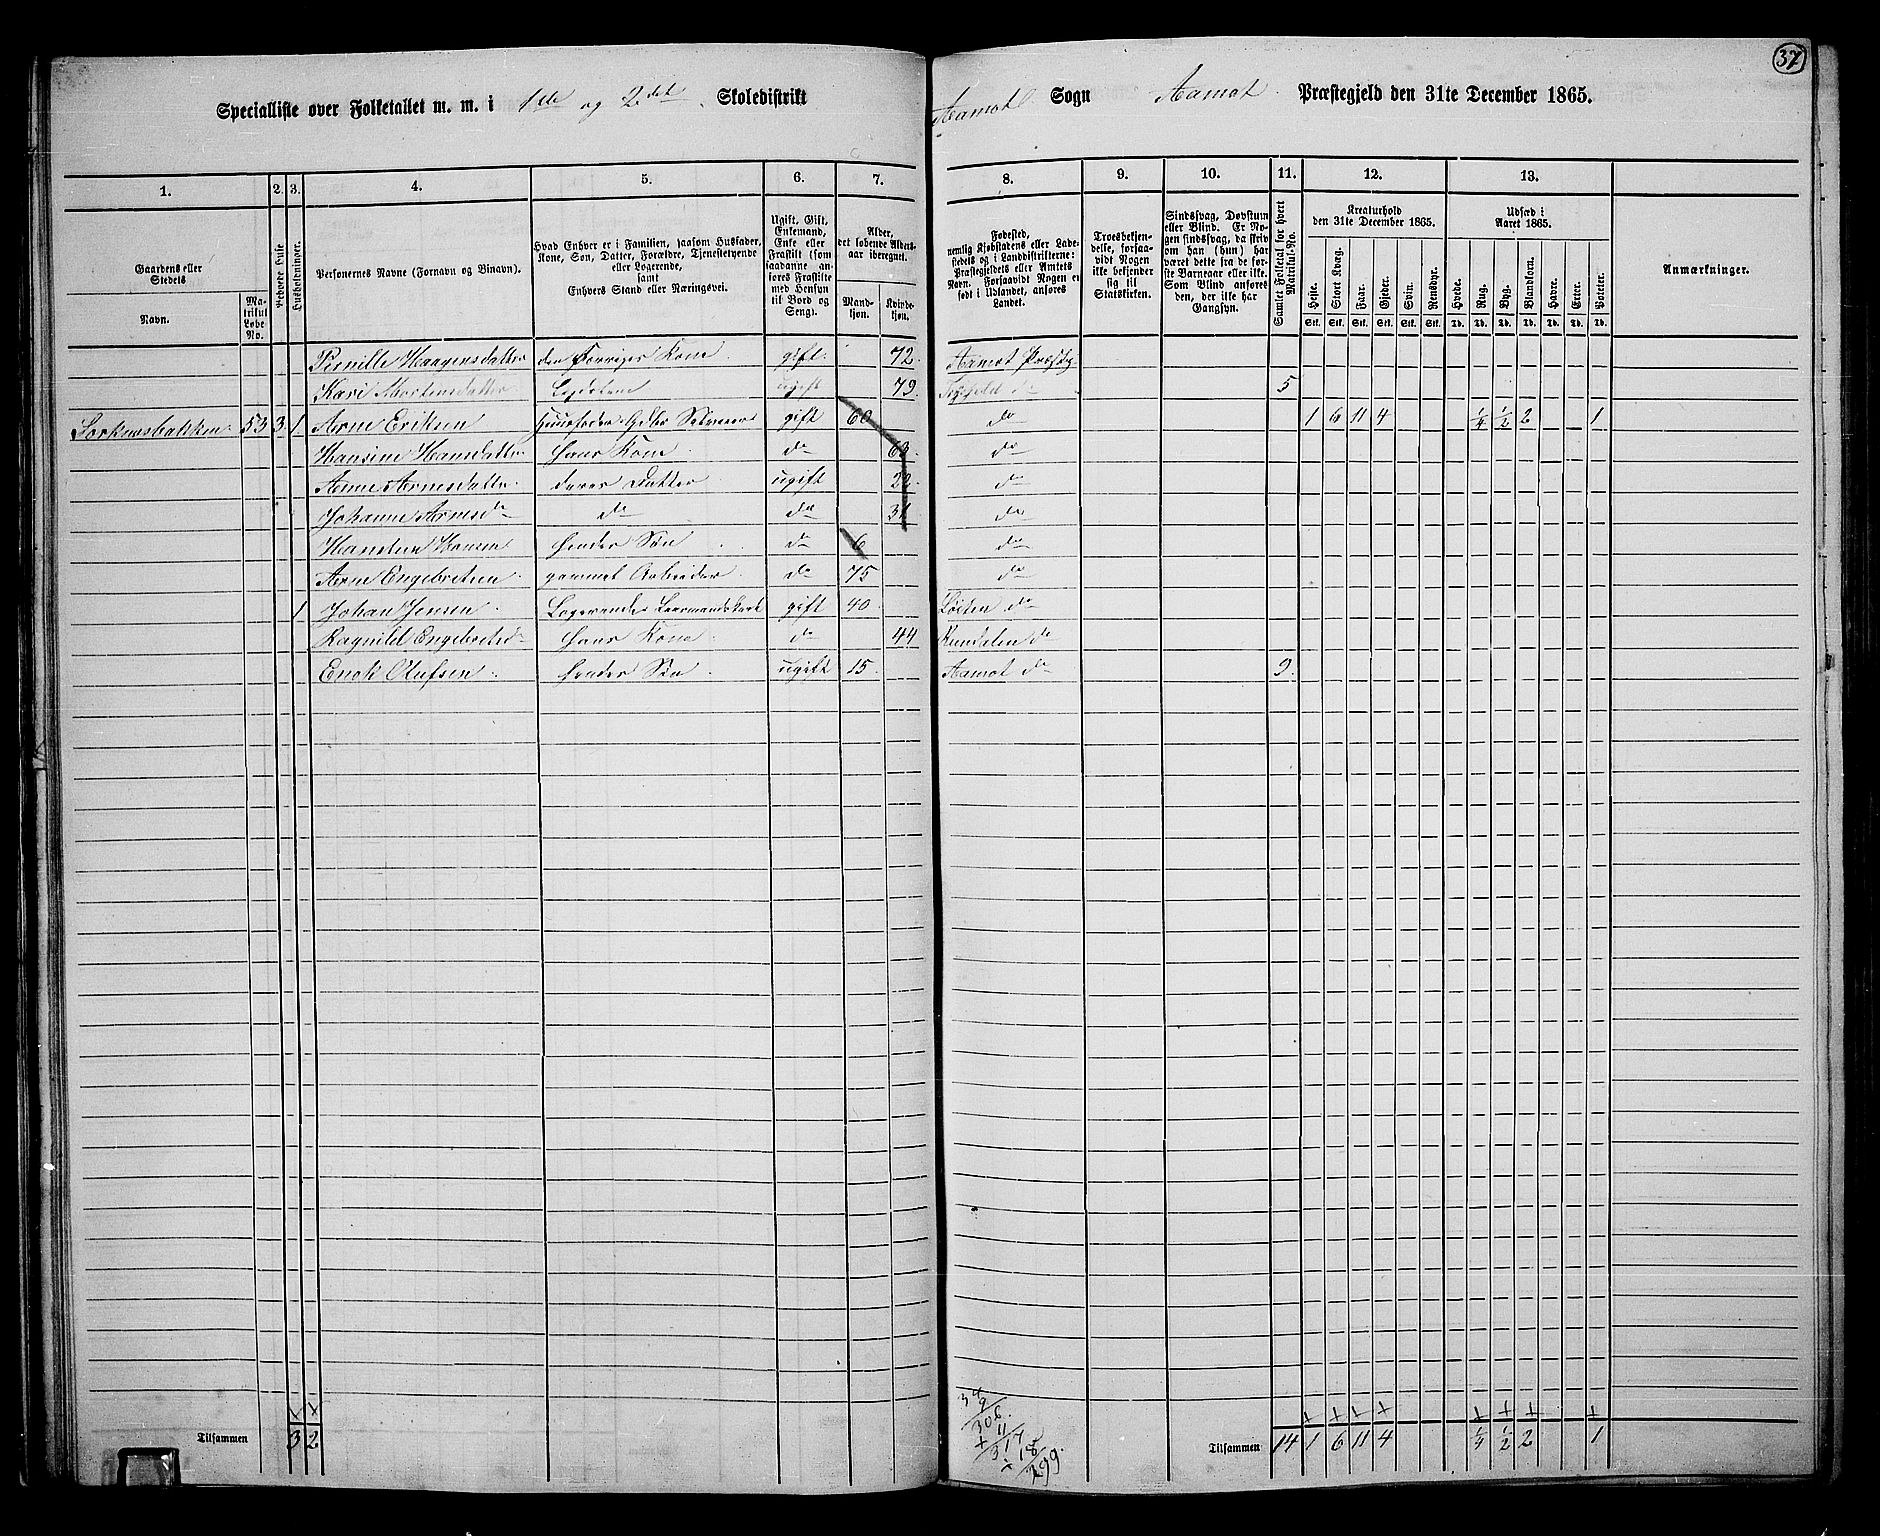 37
Specialliste over Folketallet m. m. i 1ste og 2det Skoledistrikt Aamot Sogn Aamot Præstegjeld den 31te December 1865.
1. 2. 3. 4. 5. 6. 7. 8. 9. 10. 11. 12. 13.
Gaardens eller Stedets
Navn.
Matrikul Løbe-No.
Beboede Huse
Husholdninger.
Personernes Navne (Fornavn og Binavn).
Hvad Enhver er i Familien, saasom Husfader,
Kone, Søn, Datter, Forældre, Tjenestetyende
eller Logerende,
samt
Enhvers Stand eller Næringsvei.
Ugift, Gift,
Enkemand,
Enke eller
Fraskilt (som
saadanne anføres
Fraskilte
med Hensyn
til Bord og
Seng).
Alder,
det løbende Alders-
aar iberegnet.
Mand-
kjøn.
Kvinde-
kjøn.
Fødested,
nemlig Kjøbstadens eller Lade-
stedets og i Landdistrikterne:
Præstegjeldets eller Amtets
Navn. Forsaavidt Nogen er
født i Udlandet, anføres
Landet.
Troesbekjen-
delse, forsaa-
vidt Nogen
ikke bekjender
sig til
Statskirken.
Sindssvag, Døvstum
eller Blind. Er No-
gen sindssvag, da skriv
om han (hun) har
været dette fra de før-
ste Barneaar eller ikke.
Som Blind anføres
den, der ikke har
Gangsyn.
Samlet Folketal for hvert Matrikul-No.
Kreaturhold
den 31te December 1865.
Heste. Stort Kvæg. Faar. Gjeder. Svin. Rensdyr.
Stk. Stk. Stk. Stk. Stk. Stk.
Udsæd i
Aaret 1865.
Hvede. Rug. Byg. Blandkorn. Havre. Erter. Poteter.
Td. Td. Td. Td. Td. Td. Td.
Anmærkninger.
Pernille Haagensdatter den Forriges Kone gift 72 Aamot Præstg.
Kari Mortensdatter ugift 79 do 5
53 3 1 Arne Eriksen Huusfader gift 60 do 1 6 11 4 1/4 1/2 2 1
Hansine Hansdatter hans Kone do 63 do
Anne Arnesdatter deres Datter ugift do
Johanne Arnesd. do do 31 do
Hansen hendes Søn do 6 do
Arne Engebretsen gammel Arbeider do 75 do
1 Johan Jensen Logerende gift 40 Løiten do
Ragnild Engebretsd. hans Kone do 44 do
Enok Olufsen hendes Søn ugift 15 Aamot do 9
Tilsammen 3 2
306
11
317
18
299
Tilsammen 14 1 6 11 4 1/4 1/2 2 1